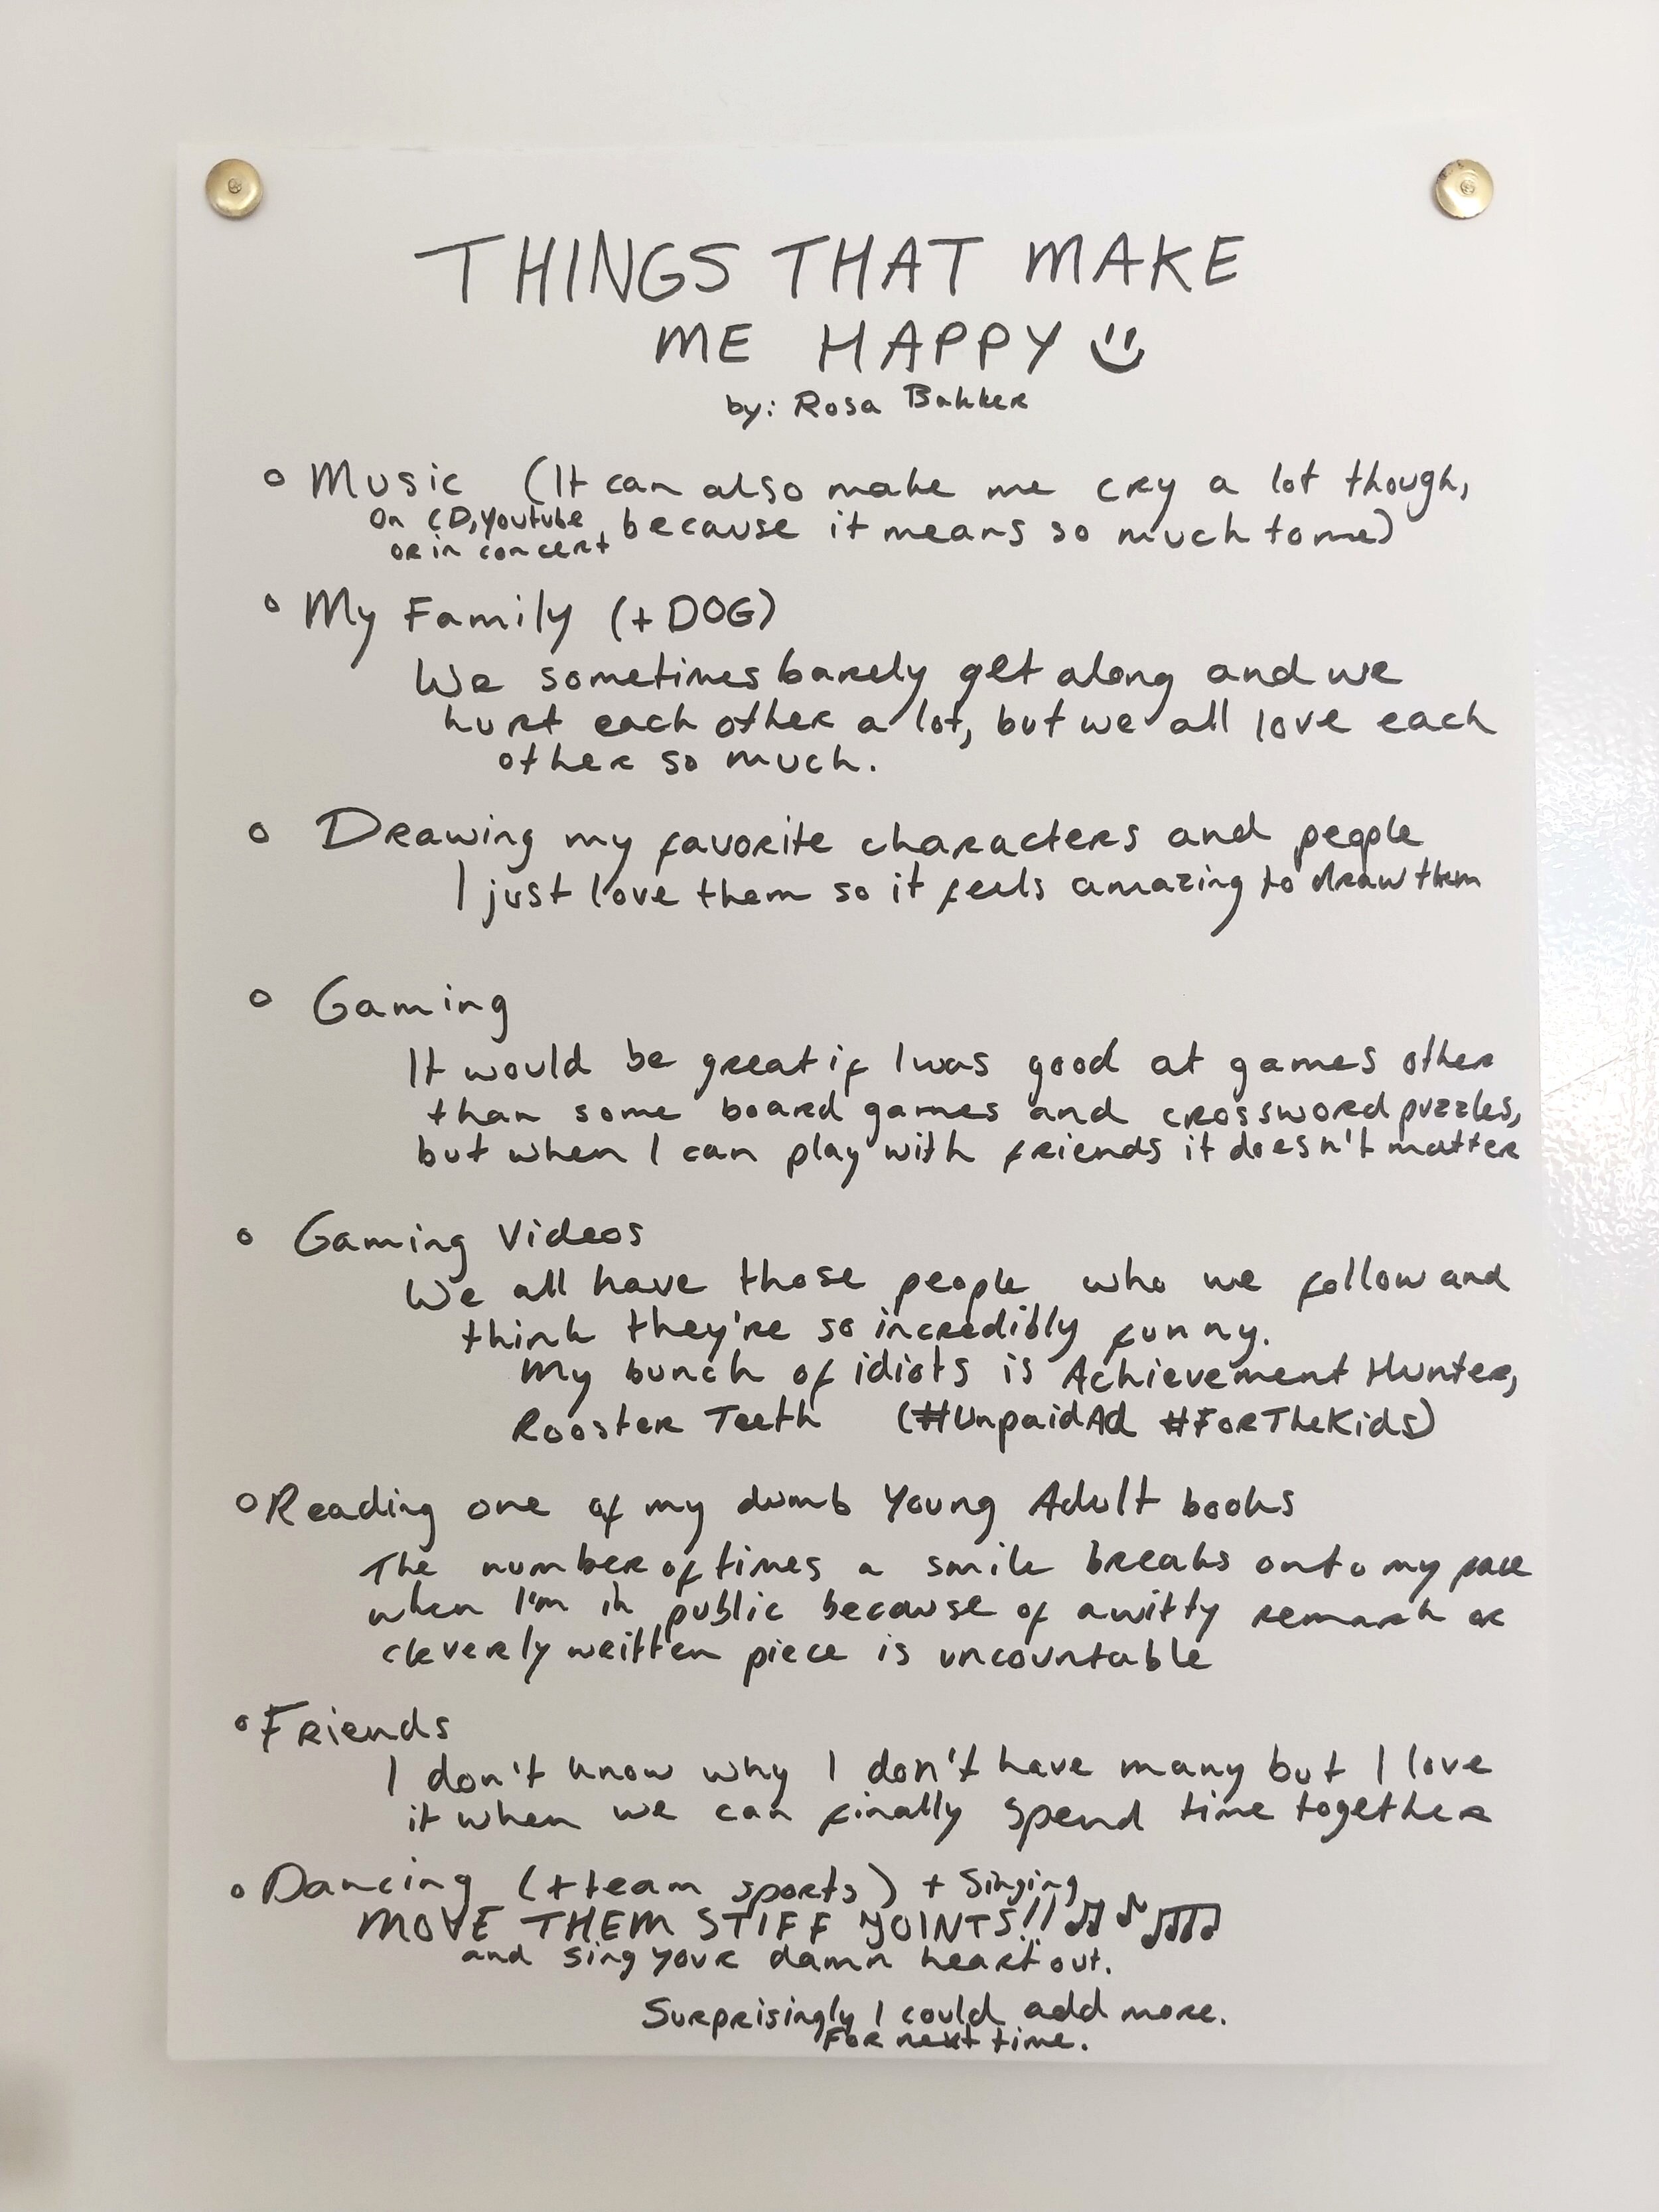 THINGS THAT MAKE
ME HAPPY
by: Rosa Bakker
Music (It can also make me cry a lot though,
On CD, Youtube because it means so much to me)
or in concert
My Family (+ DOG)
We sometimes barely get along and we
hurt each other a lot, but we all love each
other so much.
Drawing my favorite characters and people
I just love them so it feels amazing to draw them
Gaming
It would be great if I was good at games other
than some board games and crossword puzzles,
but when I can play with friends it doesn't matter
Gaming Videos
We all have those people who we follow and
think they're so incredibly funny.
My bunch of idiots is Achievement Hunter,
Rooster Teeth (#UnpaidAd #ForTheKids)
Reading one of my dumb Young Adult books
The number of times a smile breaks onto my face
when I'm in public because of a witty remark or
cleverly written piece is uncountable
Friends
I don't know why I don't have many but I love
it when we can finally spend time together
Dancing (+team sports) + Singing
MOVE THEM STIFF JOINTS!!
and sing your damn heart out.
Surprisingly I could add more.
For next time.